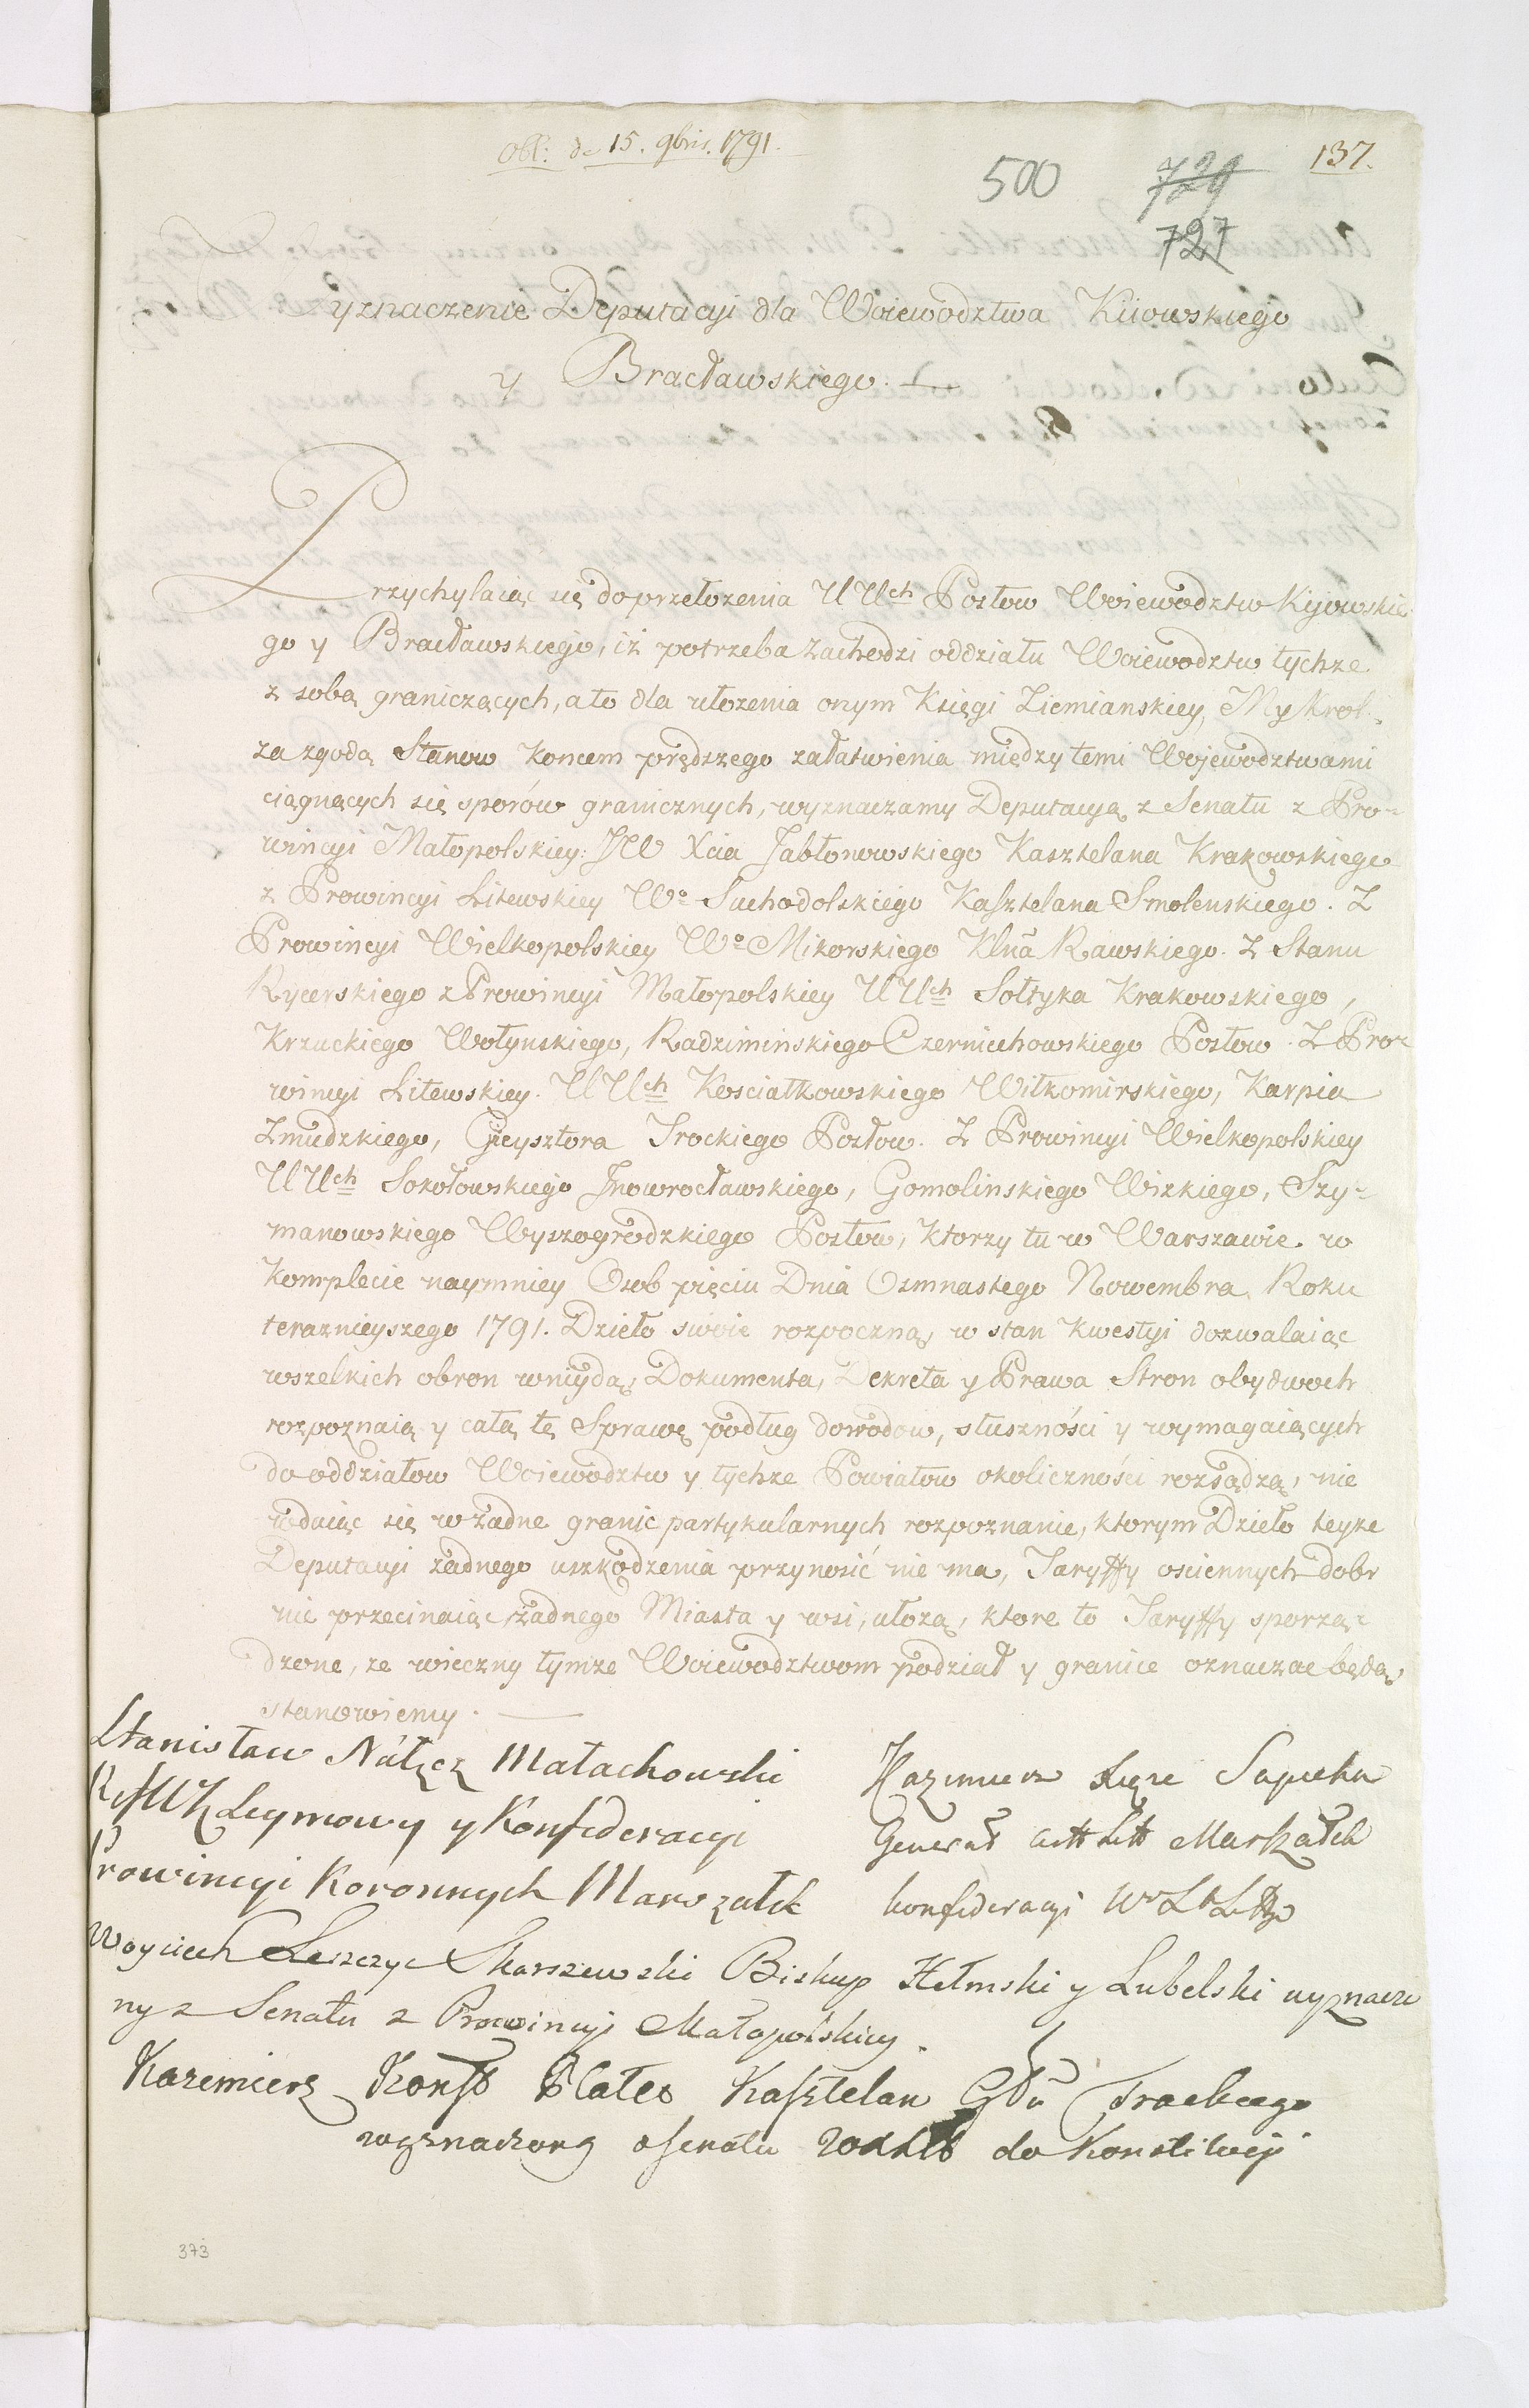 Obl: de 15. 9bris. 1791.
137.
500
729
727
Wyznaczenie Deputacyi dla Woiewodztwa Kiiowskiego
y Bracławskiego.
Przychylaiąc się do przełożenia UUch Posłow Woiewodztw Kijowskie
go y Bracławskiego, iż potrzeba zachodzi oddziału Woiewodztw tychże
z sobą graniczących, a to dla ułożenia onym Księgi Ziemianskiey, My Krol
za zgodą Stanow koncem prędszego załatwienia między temi Wojewodztwami
ciągnących się sporów granicznych, wyznaczamy Deputacyą z Senatu z Pro-
wincyi Małopolskiey: JW Xcia Jabłonowskiego Kasztelana Krakowskiego
z Prowincyi Litewskiey Wo Suchodolskiego Kasztelana Smolenskiego. Z
Prowincyi Wielkopolskiey Wo Mikorskiego Klna Rawskiego. Z Stanu
Rycerskiego z Prowincyi Małopolskiey UUch Sołtyka Krakowskiego,
Krzuckiego Wołynskiego, Radziminskiego Czerniechowskiego Posłow. Z Pro-
wincyi Litewskiey. UUch Kosciałkowskiego Wiłkomirskiego, Karpia
Zmudzkiego, Gieysztora Trockiego Posłow. Z Prowincyi Wielkopolskiey
UUch Sokołowskiego Jnowrocławskiego, Gomolinskiego Wizkiego, Szy-
manowskiego Wyszogrodzkiego Posłow, ktorzy tu w Warszawie w
Komplecie naymniey Osob pięciu Dnia Osmnastego Nowembra Roku
teraznieyszego 1791. Dzieło swoie rozpoczną, w stan kwestyi dozwalaiąc
wszelkich obron wniydą, Dokumenta, Dekreta y Prawa Stron obydwoch
rozpoznaią y całą tę Sprawę podług dowodow, słuszności y wymagaiących
do oddziałow Woiewodztw y tychże Powiatow okoliczności rozsądzą, nie
wdaiąc się w żadne granic partykularnych rozpoznanie, ktorym Dzieło teyże
Deputacyi żadnego uszkodzenia przynosić nie ma, Taryffy osciennych dobr
nie przecinaiąc żadnego Miasta y wsi, ułożą, ktore to Taryffy sporzą-
dzone, że wieczny tymże Woiewodztwom podział y granice oznaczac będą
stanowiemy.
Stanisław Nałęcz Małachowski
Seymowy y Konfederacyi
Prowincyi Koronnych Marszałek
Kazimierz Xsąże Sapieha
Generał Artt Litt Marszałek
konfederacyi
Woyciech Leszczyc Skarszewski Biskup Hełmski y Lubelski wyznaczo
ny z Senatu z Prowincyi Małopolskiey.
Kazimierz Konst Plater Kasztelan Głu Trockiego
wyznaczony z Senatu do Konstitucyi
373